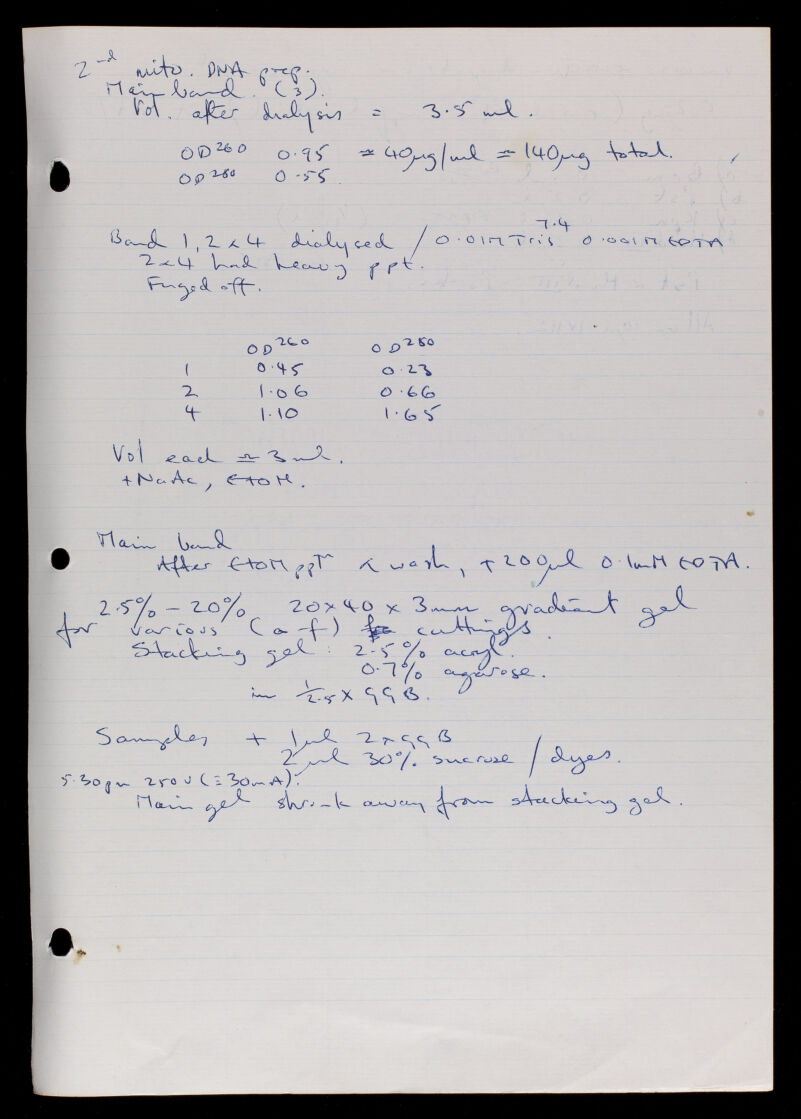 2nd mito. DNA prep.
Main band. (3).
Vol. after dialysis = 3.5 ml.
OD260 0.95 ≃ 40µg/ml ≃ 140µg total.
OD280 0.55
Band 1, 2 & 4 dialysed / 0.01M Tris 7.4 0.001M EDTA
2 & 4 had heavy ppt.
Fuged off.
OD260 OD280
1 0.45 0.23
2 1.06 0.66
4 1.10 1.65
Vol each ≃ 3ml.
+NaAc, EtOH.
Main band
After EtOH ppTn & wash, + 200µl 0.1mM EDTA.
2.5% - 20% 20 x 40 x 3mm gradient gel
for various (a-f) cuttings.
Stacking gel: 2.5% acryl.
0.7% agarose.
in 1/2.5 x GGB.
Samples + 1µl 2 x GGB
2µl 30% sucrose / dyes.
5.30pm 250v (≡30mA).
Main gel shrank away from stacking gel.